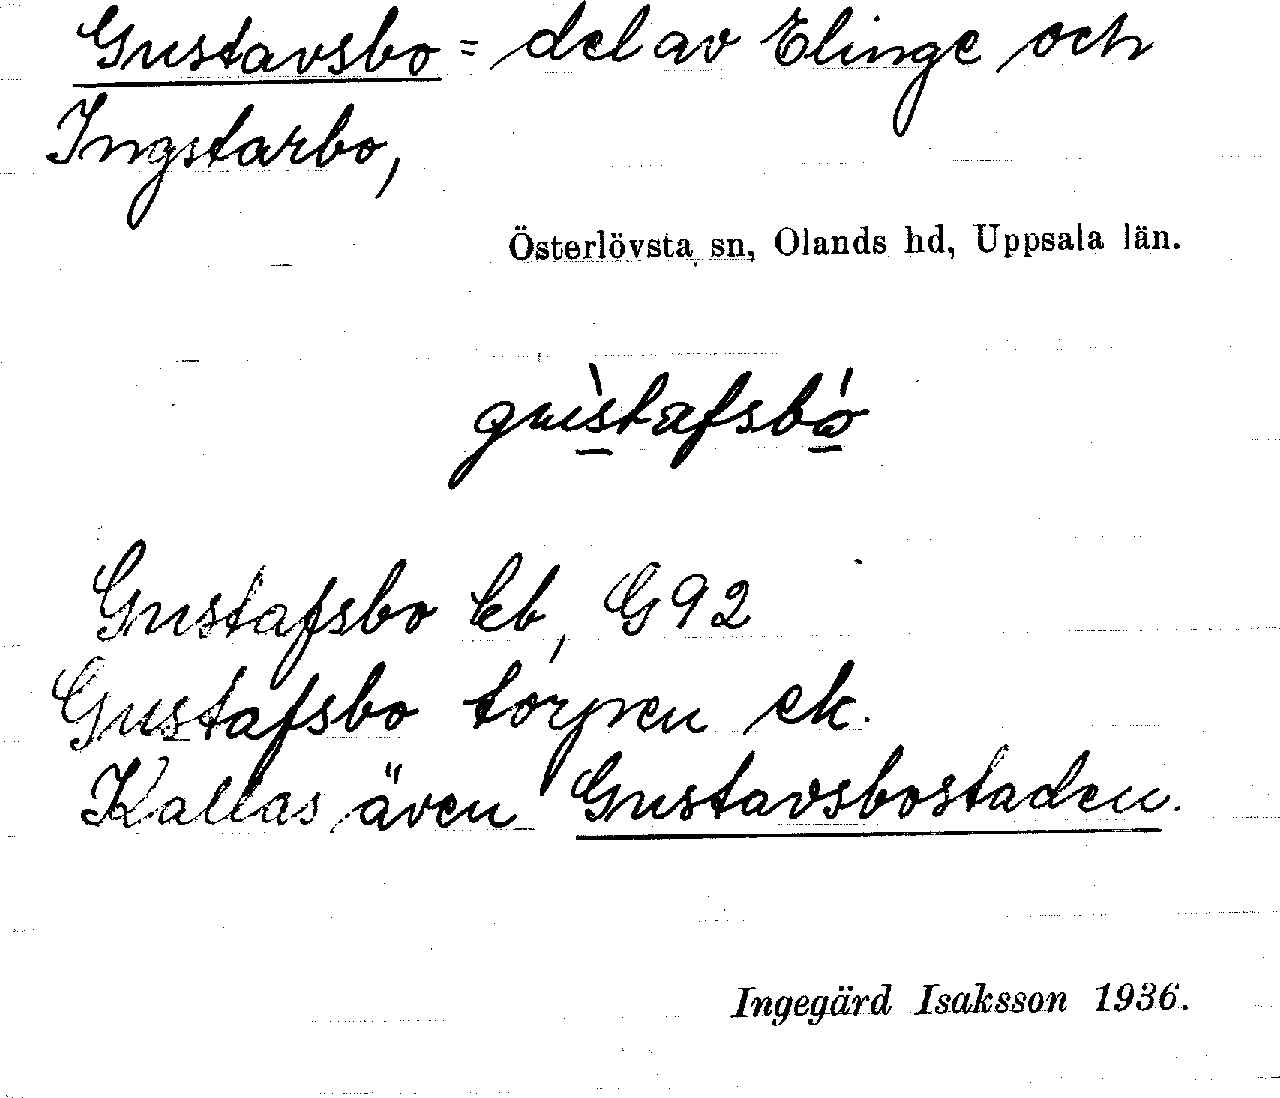 Gustavsbo = del av Elinge och
Ingstarbo,
Österlövsta sn, Olands hd, Uppsala län.
gùstafsbó
Gustafsbo Eb, G92
Gustafsbo torpen ek.
Kallas även Gustavsbostaden.
Ingegärd Isaksson 1936.